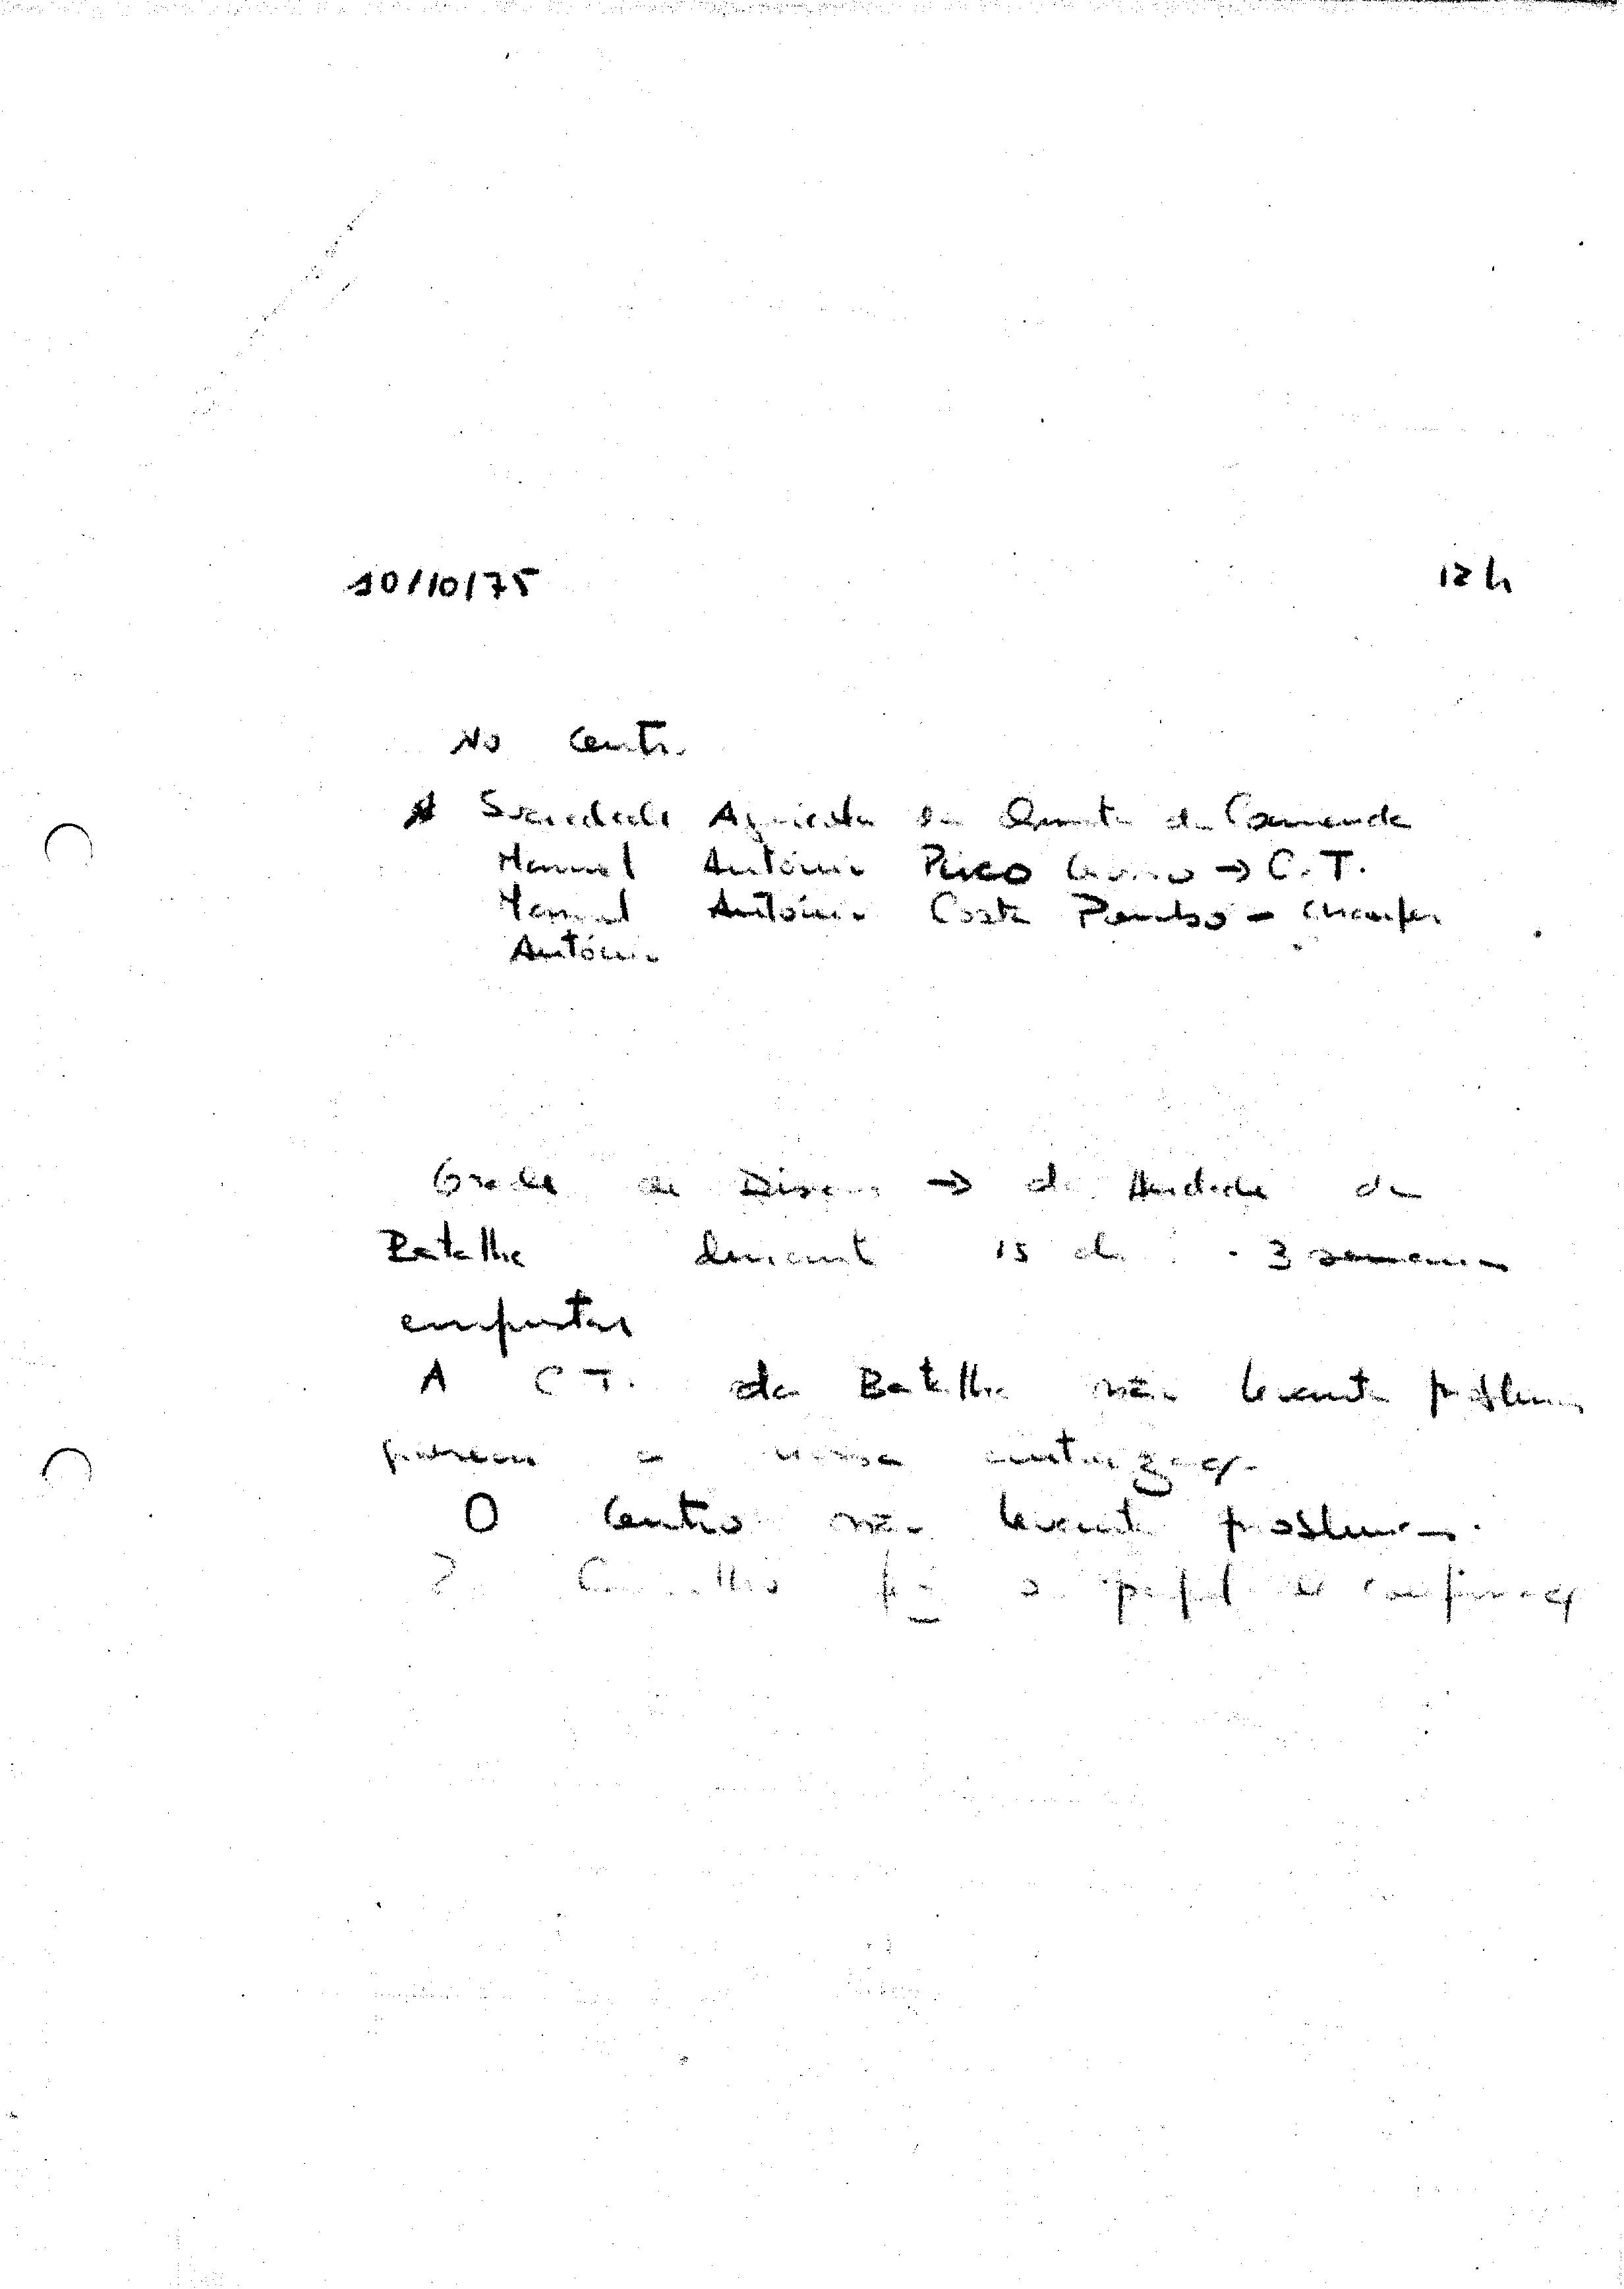 10/10/75 12 h
No Centro
Sociedade Agricola da Quinta da Comenda
Manuel António Pisco → C.T.
Manuel António Costa Pombo - Chaufer
António
Grade de Discos → da Herdade da
Batalha durante 15 dias - 3 semanas
emprestar
A C.T. da Batalha não levanta problemas
precisa a nossa autorização
O Centro não levanta problemas.
o papel de confirmação